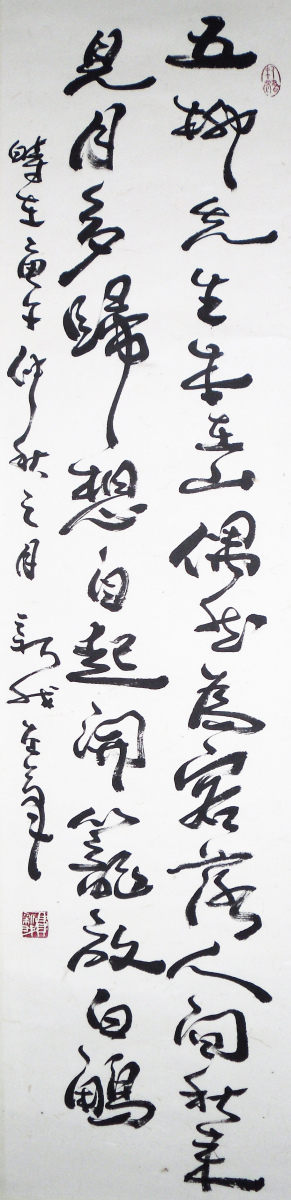 五柳先生本在山偶然為客落人間秋来
見月多歸想自起開籠放白鷴
時在庚午仲秋之月新我左筆